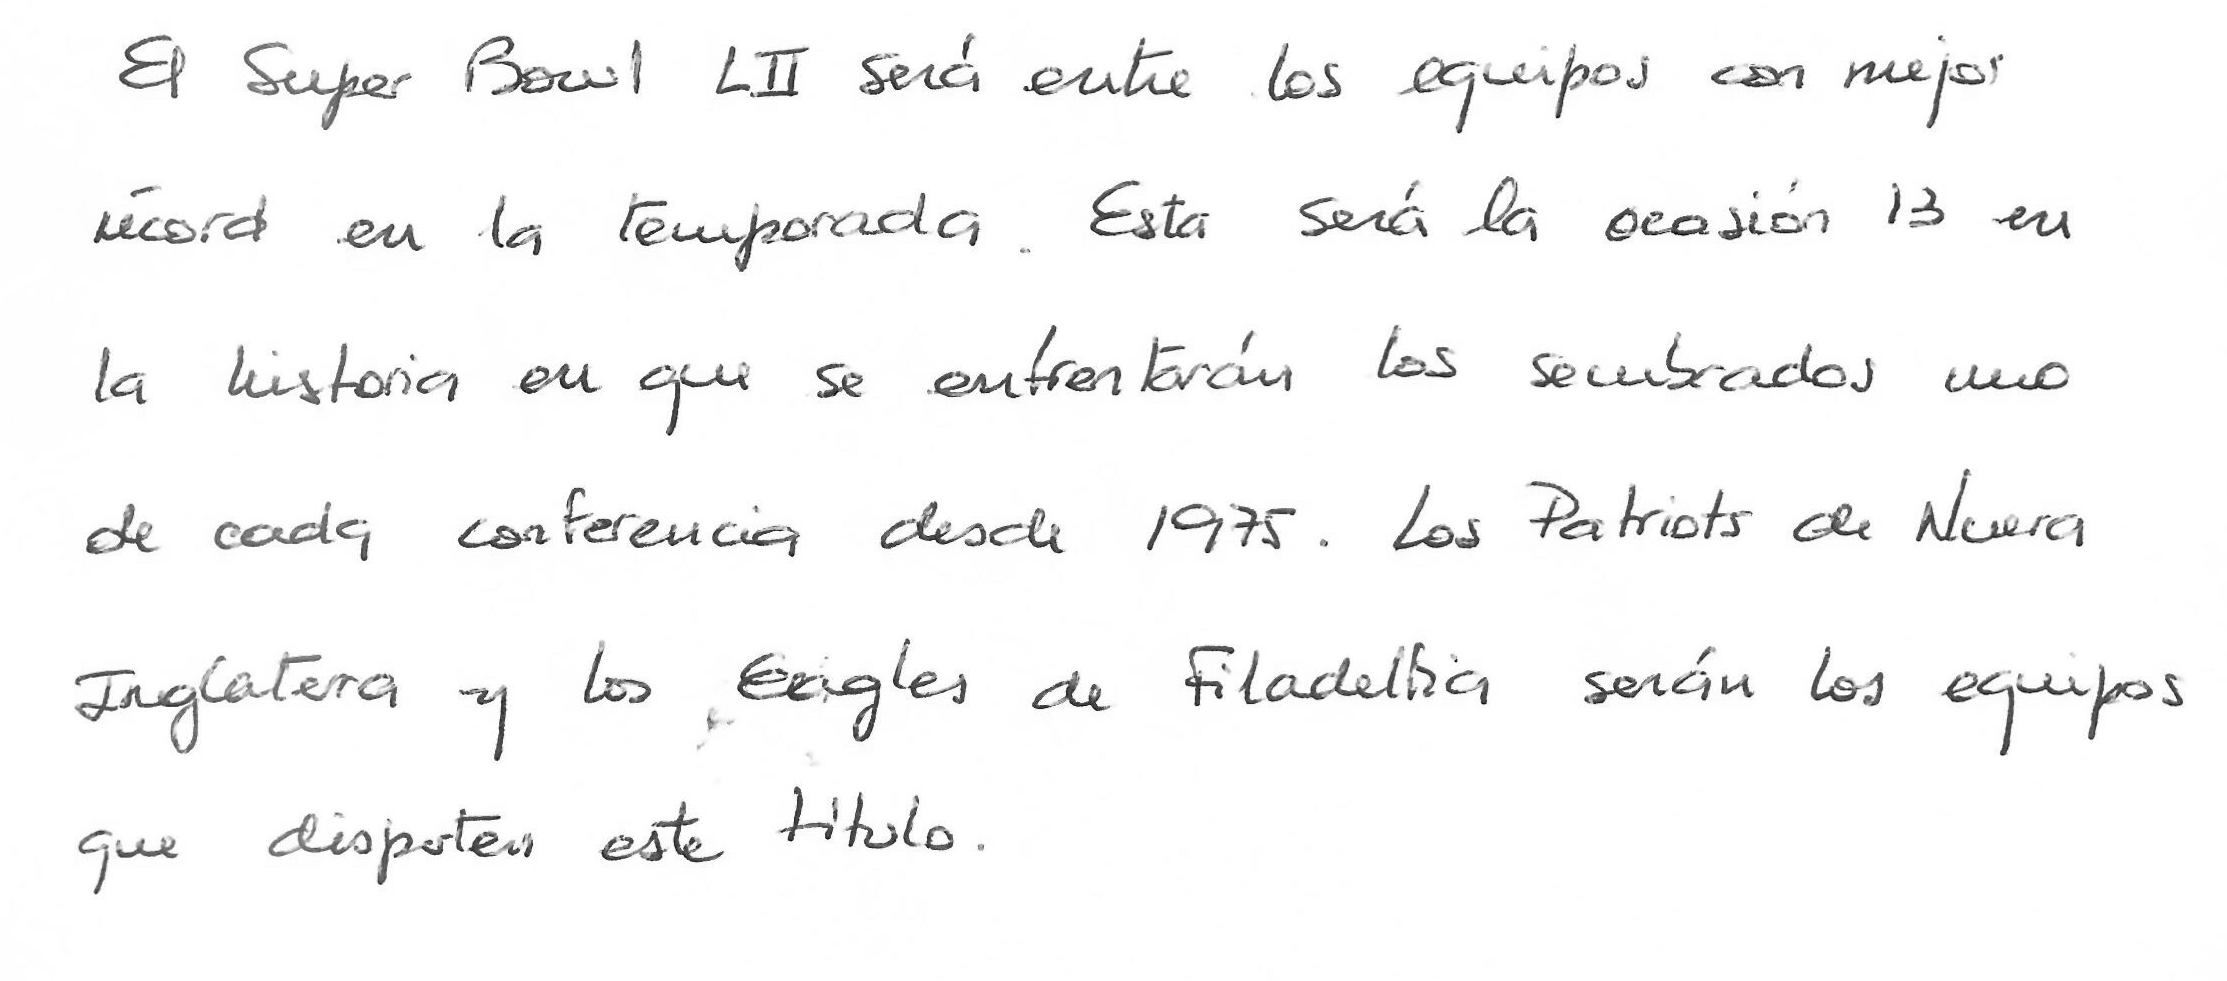 El Super Bowl LII será entre los equipos con mejor
récord en la temporada. Esta será la ocasión 13 en
la historia en que se enfrentarán los sembrados uno
de cada conferencia desde 1975. Los Patriots de Nueva
Inglaterra y los Eagles de Filadelfia serán los equipos
que disputen este título.